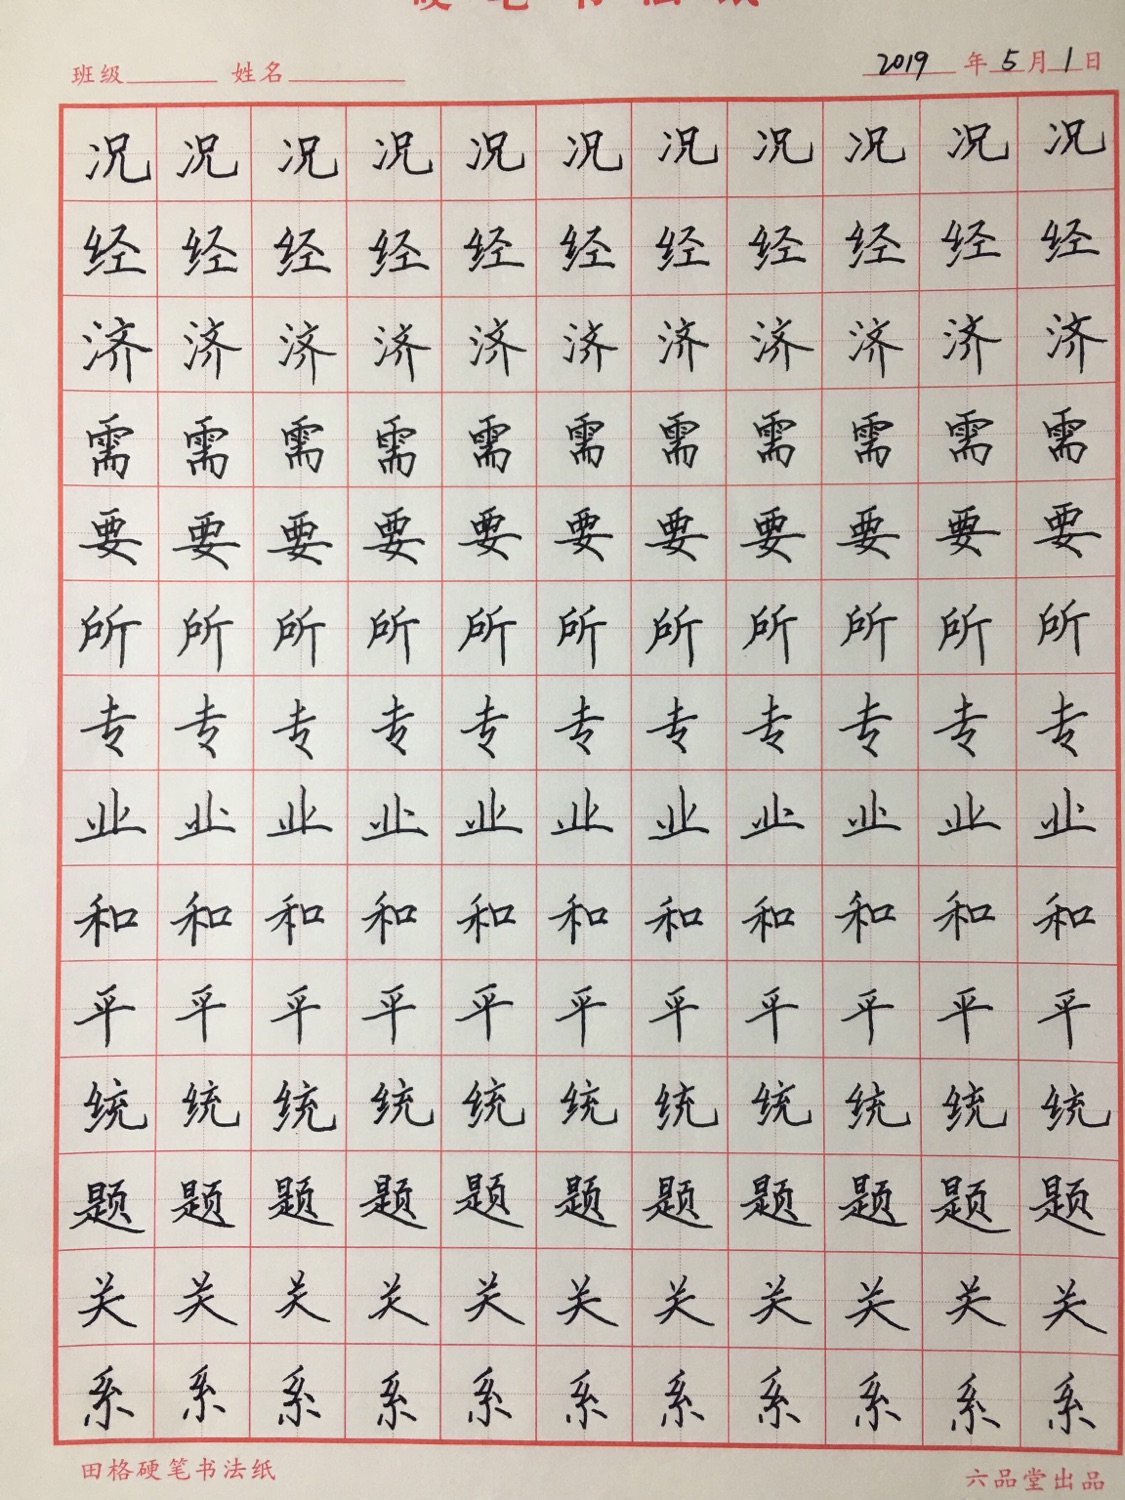 硬笔书法纸
班级 姓名 2019年5月1日
况况况况况况况况况况况
经经经经经经经经经经经
济济济济济济济济济济济
需需需需需需需需需需需
要要要要要要要要要要要
所所所所所所所所所所所
专专专专专专专专专专专
业业业业业业业业业业业
和和和和和和和和和和和
平平平平平平平平平平平
统统统统统统统统统统统
题题题题题题题题题题题
关关关关关关关关关关关
系系系系系系系系系系系
田格硬笔书法纸 六品堂出品